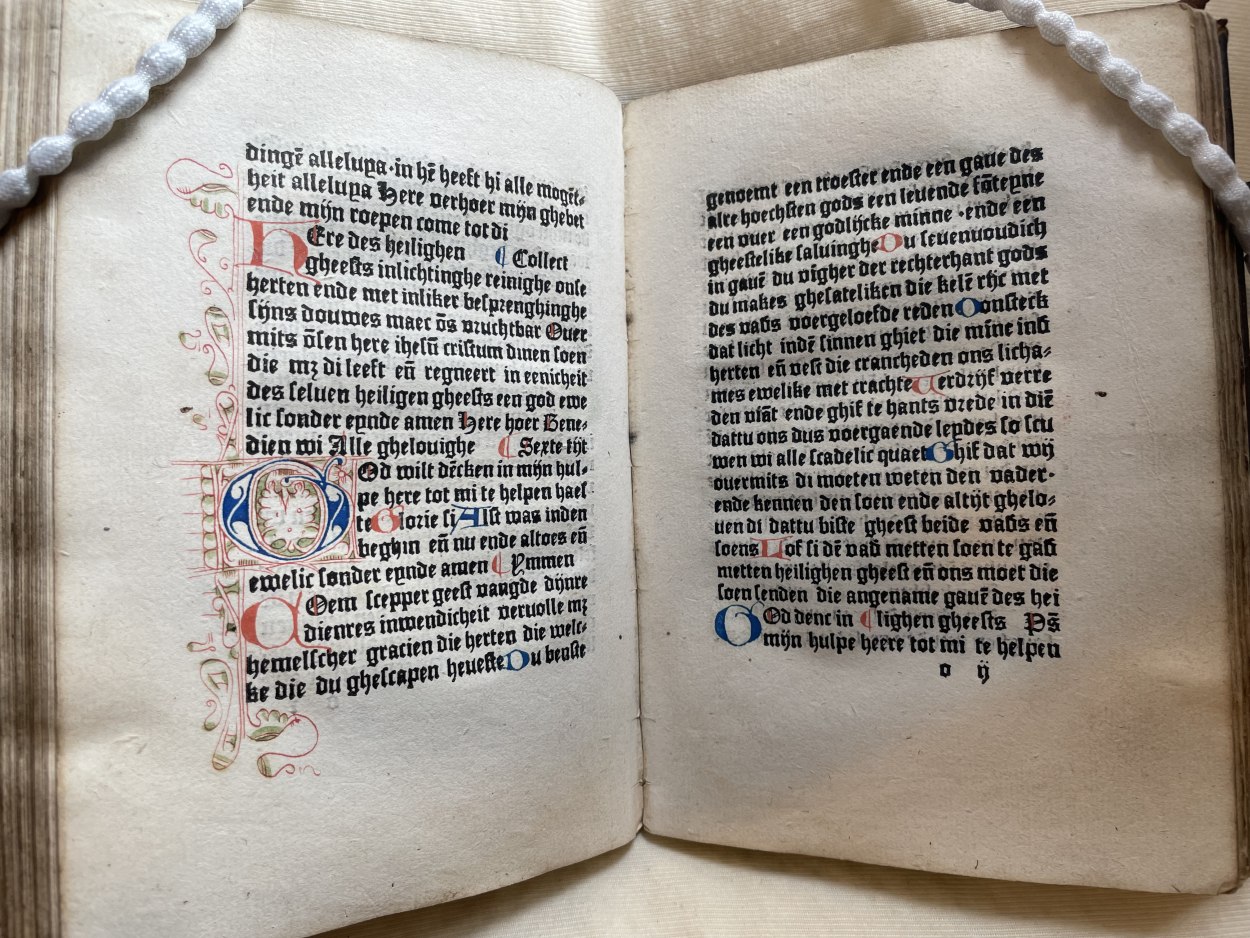 dingē alleluya·in hē heeft hi alle mogēt⸗
heit alleluya Here verhoer mijn ghebet
ende mijn roepen come tot di
HEre des heilighen ¶ Collect
gheests inlichtinghe reinighe onse
herten ende met inliker besprenghinghe
sijns douwes maec ōs vruchtbar Ouer
mits ōsen here ihesū cristum dinen soen
die mz di leeft eñ regneert in eenicheit
des seluen heiligen gheests een god ewe
lic sonder eynde amen Here hoer Bene⸗
dien wi Alle ghelouighe ¶ Sexte tijt
GOd wilt dēcken in mijn hul⸗
pe here tot mi te helpen hael
te Glorie si Alst was inden
beghin eñ nu ende altoes eñ
ewelic sonder eynde amen ¶ Ymmen
COem scepper geest vangde dijnre
dienres inwendicheit veruolle mz
hemelscher gracien die herten die welc⸗
ke die du ghescapen heueste Du benste
genoemt een troester ende een gaue des
alre hoechsten gods een leuende fōteyne
een vuer een godlijcke minne ·ende een
gheestelike saluinghe Du seuenvoudich
in gauē du vīgher der rechterhant gods
du makes ghesateliken die kelē rhc met
des vads voergeloefde reden Oonsteck
dat licht indē sinnen ghiet die mīne inb
herten eñ vest die crancheden ons licha⸗
mes ewelike met crachte Verdrijf verre
den viāt ende ghif te hants vrede in diē
dattu ons dus voergaende leydes so scu
wen wi alle scadelic quaet Ghif dat wij
ouermits di moeten weten den vader·
ende kennen den soen ende altijt ghelo⸗
uen di dattu biste gheest beide vads eñ
soens Lof si dē vad metten soen te gad
metten heilighen gheest eñ ons moet die
soen senden die angename gauē des hei
GOd denc in ¶ lighen gheests Ps̄
mijn hulpe heere tot mi te helpen
o ij